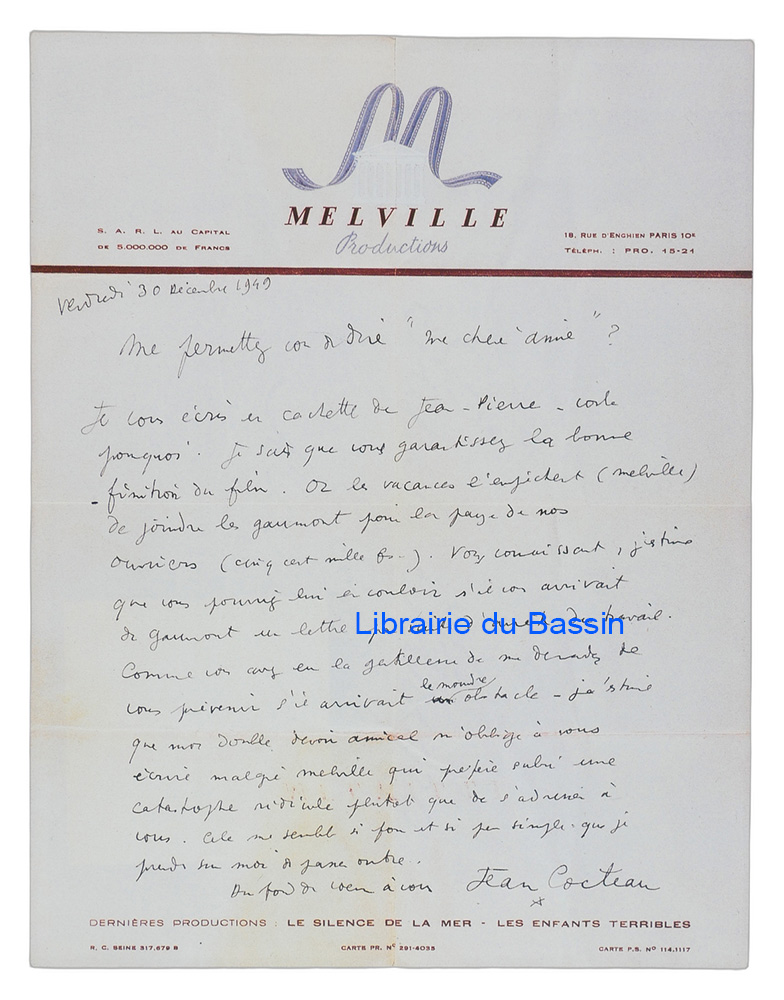 MELVILLE
Productions
S. A. R. L. AU CAPITAL
DE 5.000.000 DE FRANCS
18, RUE D'ENGHIEN PARIS 10E
TÉLÉPH. : PRO. 15-21
Vendredi 30 Décembre 1949
Me permettez vous de dire "ma chère amie" ?
Je vous écris en cachette de Jean-Pierre - voilà
pourquoi. Je sais que vous garantissez la bonne
finition du film. Or les vacances l'empêchent (melville)
de joindre les gaumont pour la paye de nos
ouvriers (cinq cent mille frs-). Vous connaissant, j'estime
que vous pourriez lui en vouloir s'il vous arrivait
de gaumont une lettre d'arrêt du travail.
Comme vous avez eu la gentillesse de me demander de
vous prévenir s'il arrivait le moindre obstacle - j'estime
que mon double devoir amical m'oblige à vous
écrire malgré melville qui préfère subir une
catastrophe ridicule plutôt que de s'adresser à
vous. Cela me semble si fou et si peu simple que je
prends sur moi de passer outre..
Du fond du coeur à vous Jean Cocteau
Librairie du Bassin
DERNIÈRES PRODUCTIONS : LE SILENCE DE LA MER - LES ENFANTS TERRIBLES
R. C. SEINE 317.679 B
CARTE PR. N° 291-4035
CARTE P.S. N° 114.1117